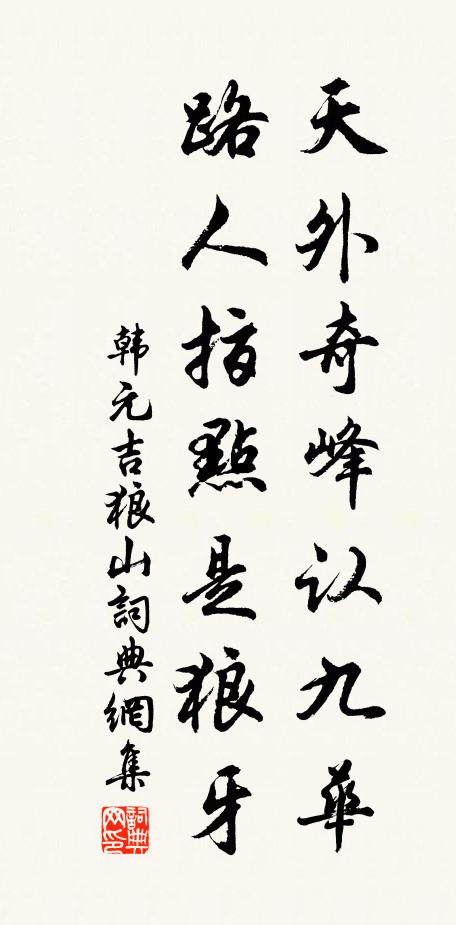 天外奇峰认九華
路人指點是狼牙
韩元吉狼山詞典網集
詞典网印